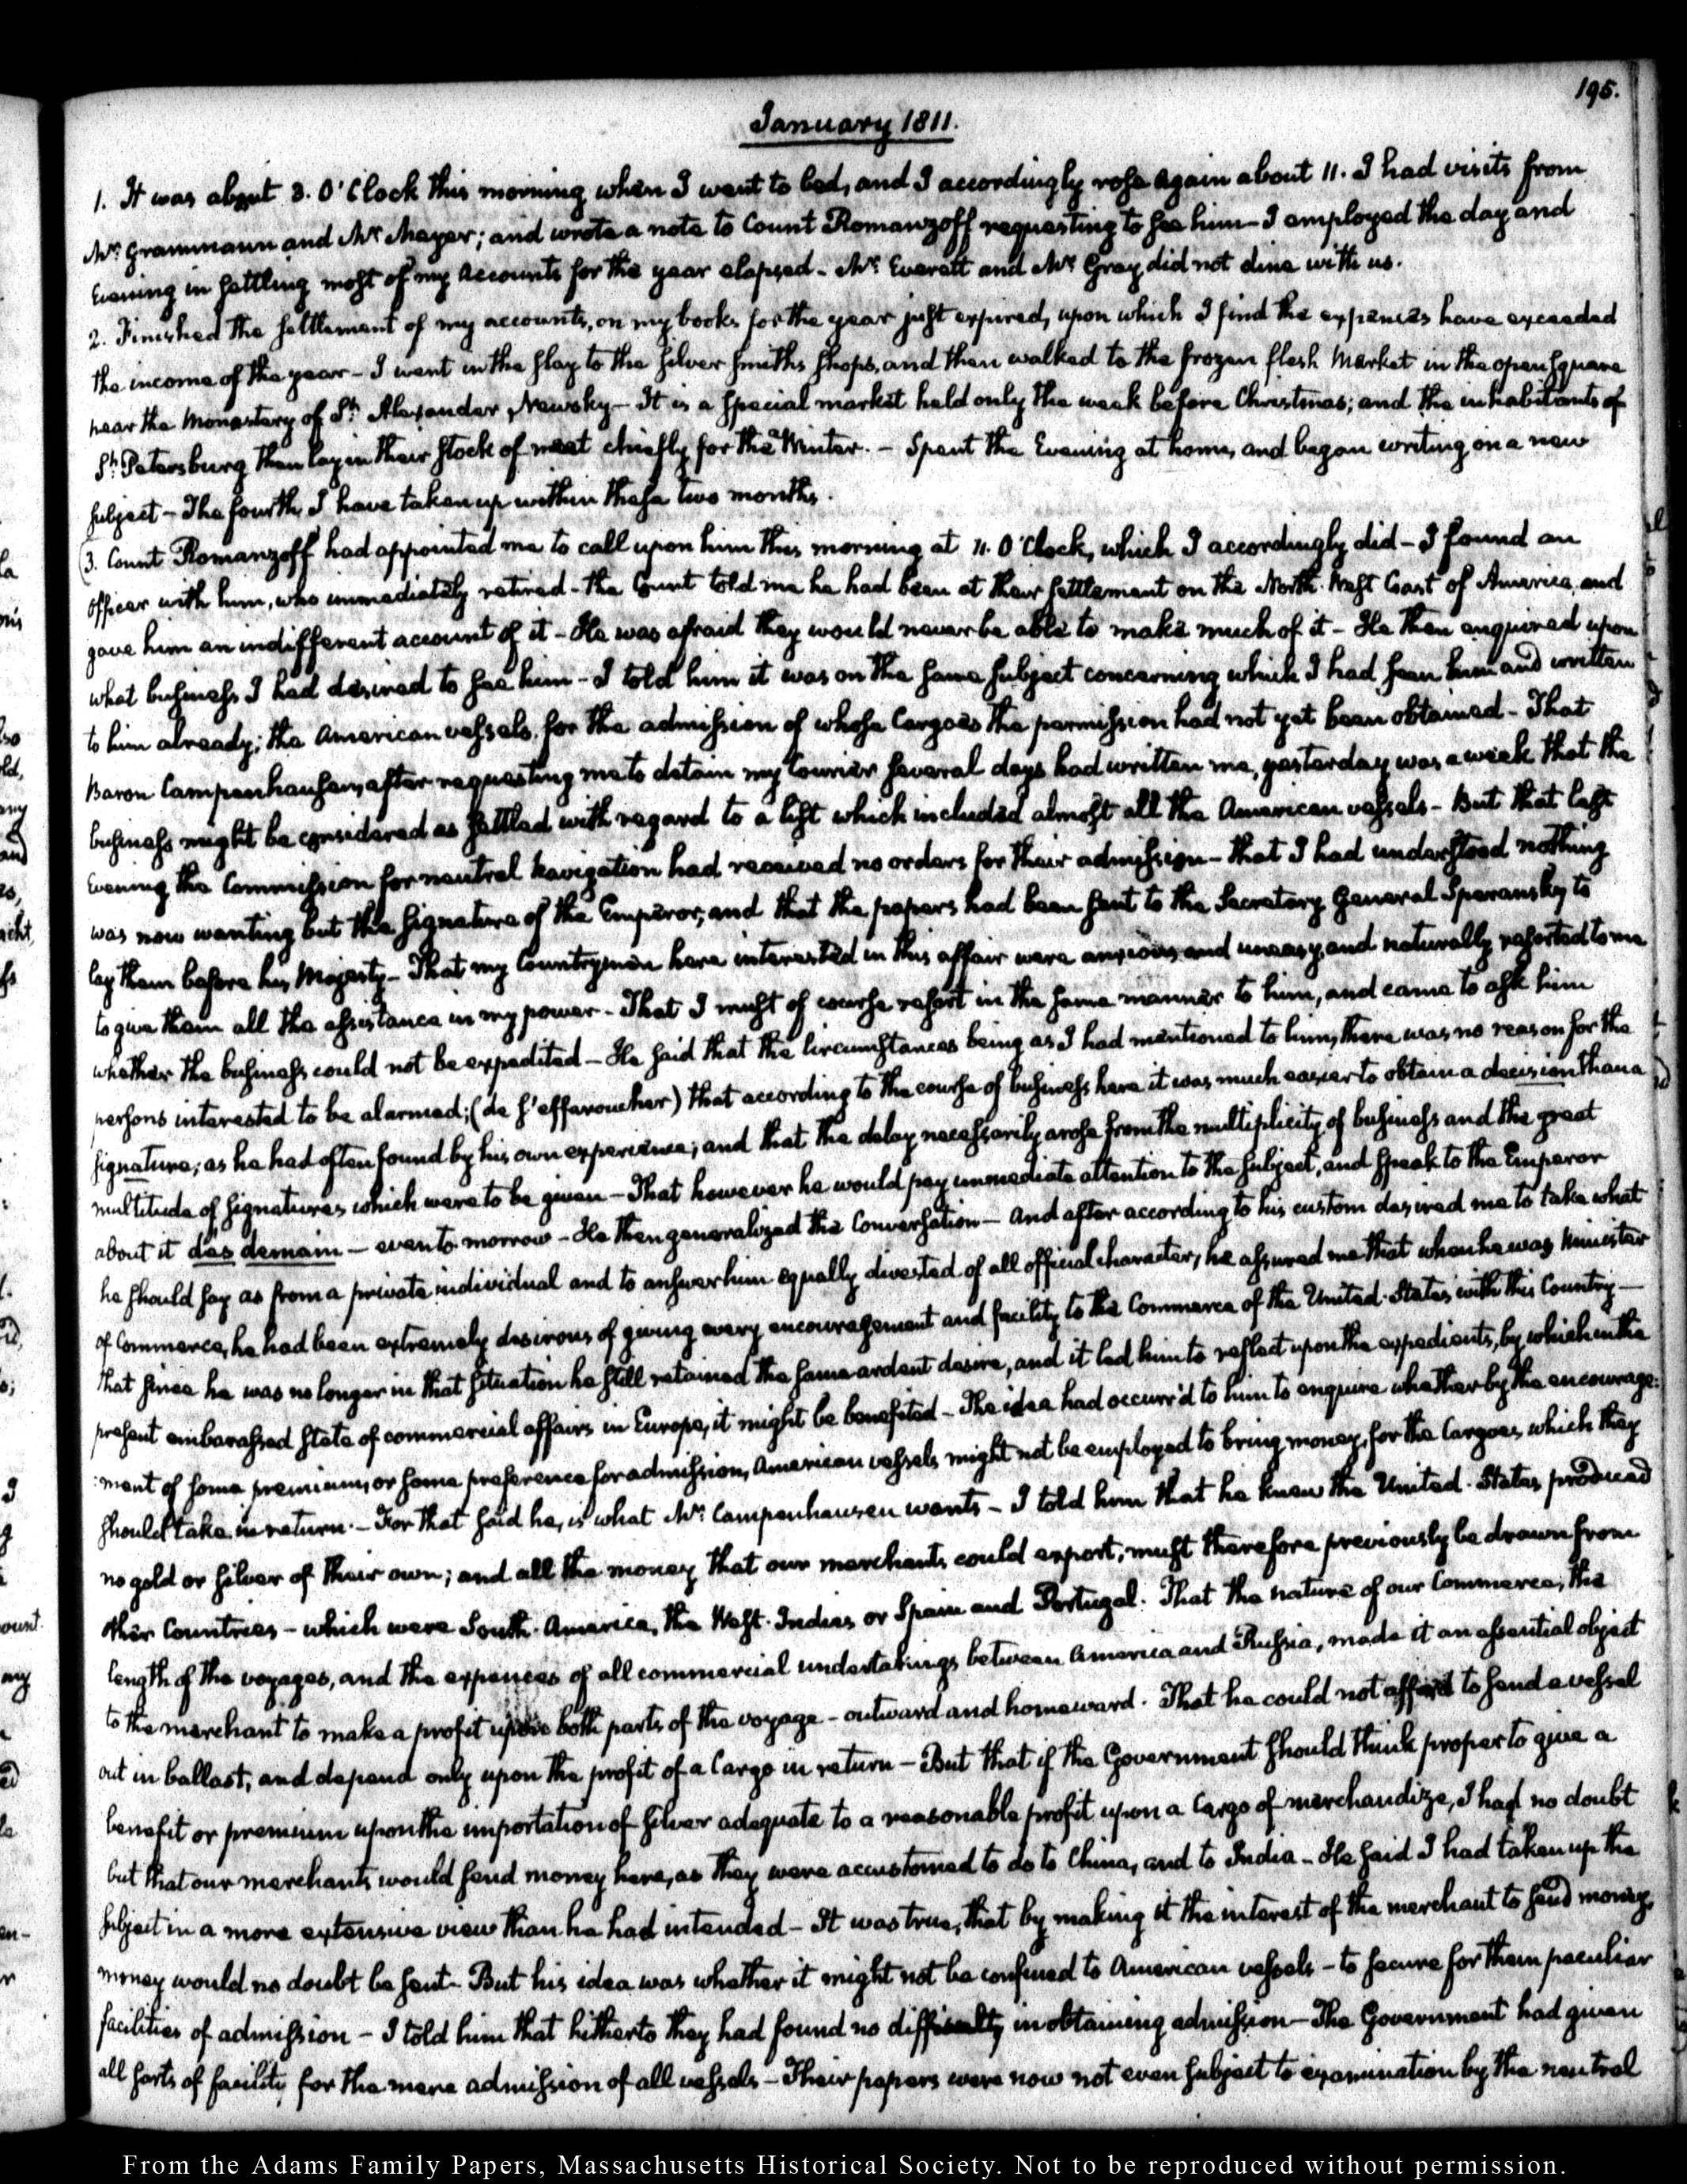 195.
January 1811.
1. It was about 3. O'Clock this morning when I went to bed, and I accordingly rose again about 11. I had visits from
Mr. Grammann and Mr. Meyer; and wrote a note to Count Romanzoff requesting to see him – I employed the day and
Evening in settling most of my Accounts for the year elapsed – Mr. Everett and Mr. Gray did not dine with us.
2. Finished the settlement of my accounts, on my books for the year just expired, upon which I find the expences have exceeded
the income of the year – I went in the slay to the silver smiths shops, and then walked to the frozen flesh Market in the open square
near the Monastery of St. Alexander Newsky – It is a special market held only the week before Christmas; and the inhabitants of
St. Petersburg then lay in their stock of meat chiefly for the Winter. – Spent the Evening at home, and began writing on a new
subject – The fourth I have taken up within these two months.
(3. Count Romanzoff had appointed me to call upon him this morning at 11. O'Clock, which I accordingly did – I found an
Officer with him, who immediately retired – the Count told me he had been at their settlement on the North-West Coast of America, and
gave him an indifferent account of it – He was afraid they would never be able to make much of it – He then enquired upon
what business I had desired to see him – I told him it was on the same subject concerning which I had seen him and written
to him already; the American vessels, for the admission of whose Cargoes the permission had not yet been obtained – That
Baron Campenhausen, after requesting me to detain my Courier several days had written me, yesterday was a week that the
business might be considered as settled with regard to a list which included almost all the American vessels – But that last
Evening the Commission for neutral Navigation had received no orders for their admission – that I had understood nothing
was now wanting but the signature of the Emperor, and that the papers had been sent to the Secretary General Speransky to
lay them before his Majesty – That my Countrymen here interested in this affair were anxious and uneasy, and naturally resorted to me
to give them all the assistance in my power – That I must of course resort in the same manner to him, and came to ask him
whether the business could not be expedited – He said that the circumstances being as I had mentioned to him, there was no reason for the
persons interested to be alarmed; (de s'effaroucher) that according to the course of business here it was much easier to obtain a decision than a
signature; as he had often found by his own experience; and that the delay necessarily arose from the multiplicity of business and the great
multitude of signatures which were to be given – That however he would pay immediate attention to the subject, and speak to the Emperor
about it dès demain – even to-morrow – He then generalized the Conversation – And after according to his custom desired me to take what
he should say as from a private individual and to answer him equally divested of all official character, he assured me that when he was Minister
of Commerce, he had been extremely desirous of giving every encouragement and facility to the Commerce of the United-States with this Country –
that since he was no longer in that situation he still retained the same ardent desire, and it led him to reflect upon the expedients, by which in the
present embarassed state of commercial affairs in Europe, it might be benefited – The idea had occurr'd to him to enquire whether by the encourage:
:ment of some premium, or some preference for admission, American vessels might not be employed to bring money, for the Cargoes, which they
should take in return. – For that said he, is what Mr. Campenhausen wants – I told him that he knew the United-States produced
no gold or silver of their own; and all the money that our merchants could export, must therefore previously be drawn from
other Countries – which were South-America, the West-Indies, or Spain and Portugal. That the nature of our Commerce, the
length of the voyages, and the expences of all commercial undertakings between America and Russia, made it an essential object
to the merchant to make a profit upon both parts of the voyage – outward and homeward. That he could not afford to send a vessel
out in ballast, and depend only upon the profit of a Cargo in return – But that if the Government should think proper to give a
benefit or premium upon the importation of silver adequate to a reasonable profit upon a Cargo of merchandize, I had no doubt
but that our merchants would send money here, as they were accustomed to do to China, and to India – He said I had taken up the
subject in a more extensive view than he had intended – It was true, that by making it the interest of the merchant to send money,
money would no doubt be sent – But his idea was whether it might not be confined to American vessels – to secure for them peculiar
facilities of admission – I told him that hitherto they had found no difficulty in obtaining admission – The Government had given
all sorts of facility for the mere admission of all vessels – Their papers were now not even subject to examination by the neutral
From the Adams Family Papers, Massachusetts Historical Society. Not to be reproduced without permission.